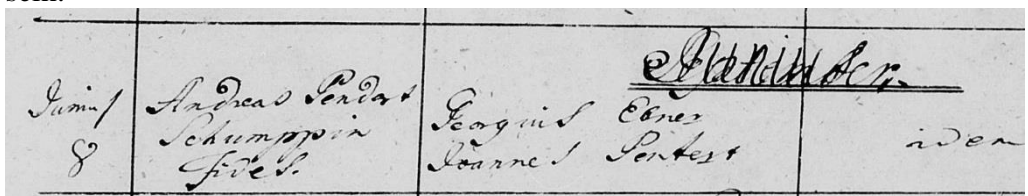 Junius
8
Andreas Pendort
Schumppin
Fides.
Georgius Ebner
Joannes Pentert
idem